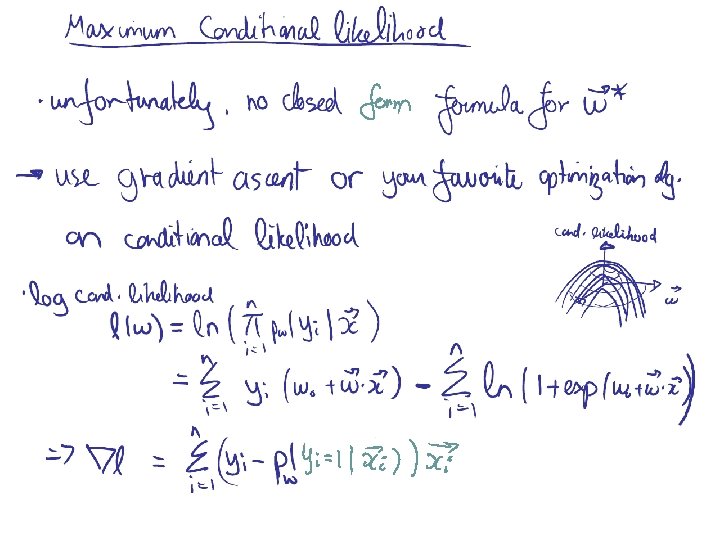 Maximum Conditional likelihood
· unfortunately, no closed form formula for w⃗*
→ use gradient ascent or your favorite optimization alg.
on conditional likelihood
cond. likelihood
w⃗
· log cond. likelihood
l(w) = ln ( ∏ᵢ₌₁ⁿ p_w(yᵢ | x⃗ )
= ∑ᵢ₌₁ⁿ yᵢ (w₀ + w⃗·x⃗) − ∑ᵢ₌₁ⁿ ln (1 + exp(w₀ + w⃗·x⃗)
=> ∇l = ∑ᵢ₌₁ⁿ (yᵢ − p_w(yᵢ=1 | x⃗ᵢ)) x⃗ᵢ